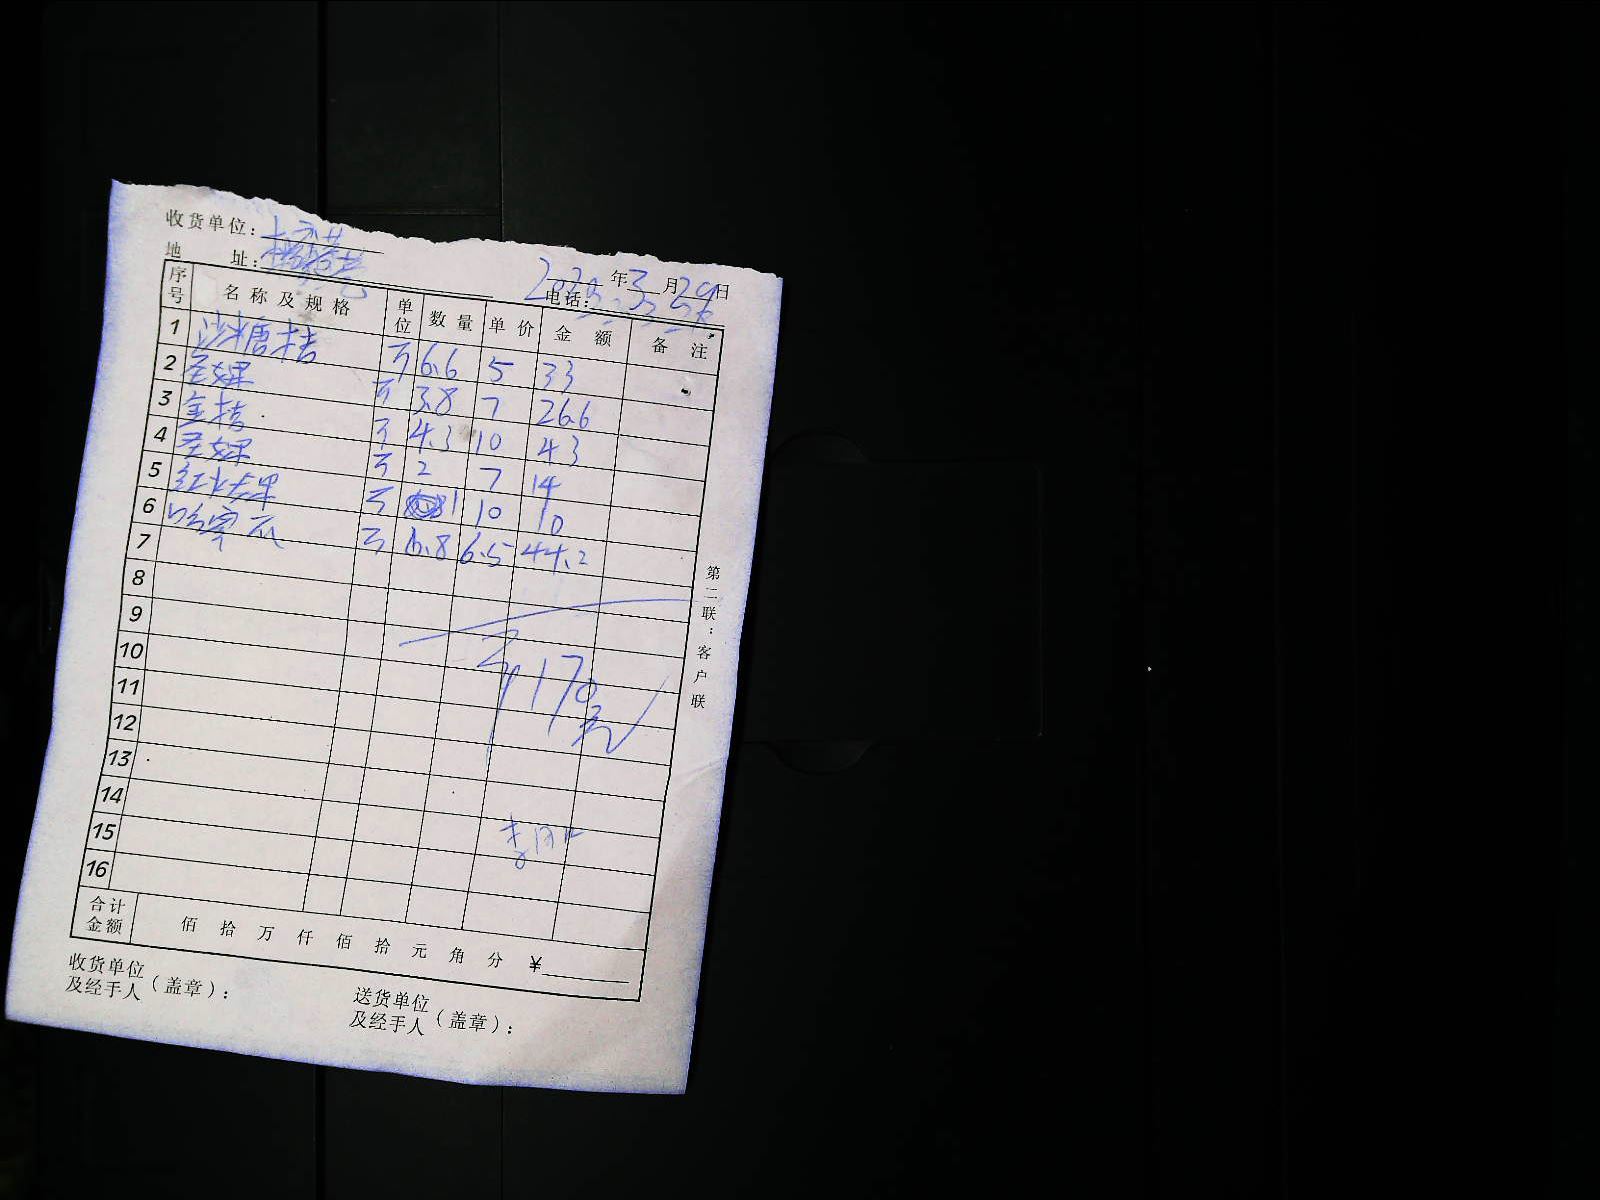 收货单位：
地 址：
2020年3月29日
电话：
序号 名称及规格 单位 数量 单价 金额 备注
1 沙糖桔 斤 6.6 5 33
2 圣女果 斤 3.8 7 26.6
3 金桔 斤 4.3 10 43
4 圣女果 斤 2 7 14
5 红水果 斤 1 10 10
6 哈密瓜 斤 6.8 6.5 44.2
7
8
9
10 170元
11
12
13
14
15
16
合计金额 佰 拾 万 仟 佰 拾 元 角 分 ¥
第二联：客户联
收货单位及经手人（盖章）：
送货单位及经手人（盖章）：